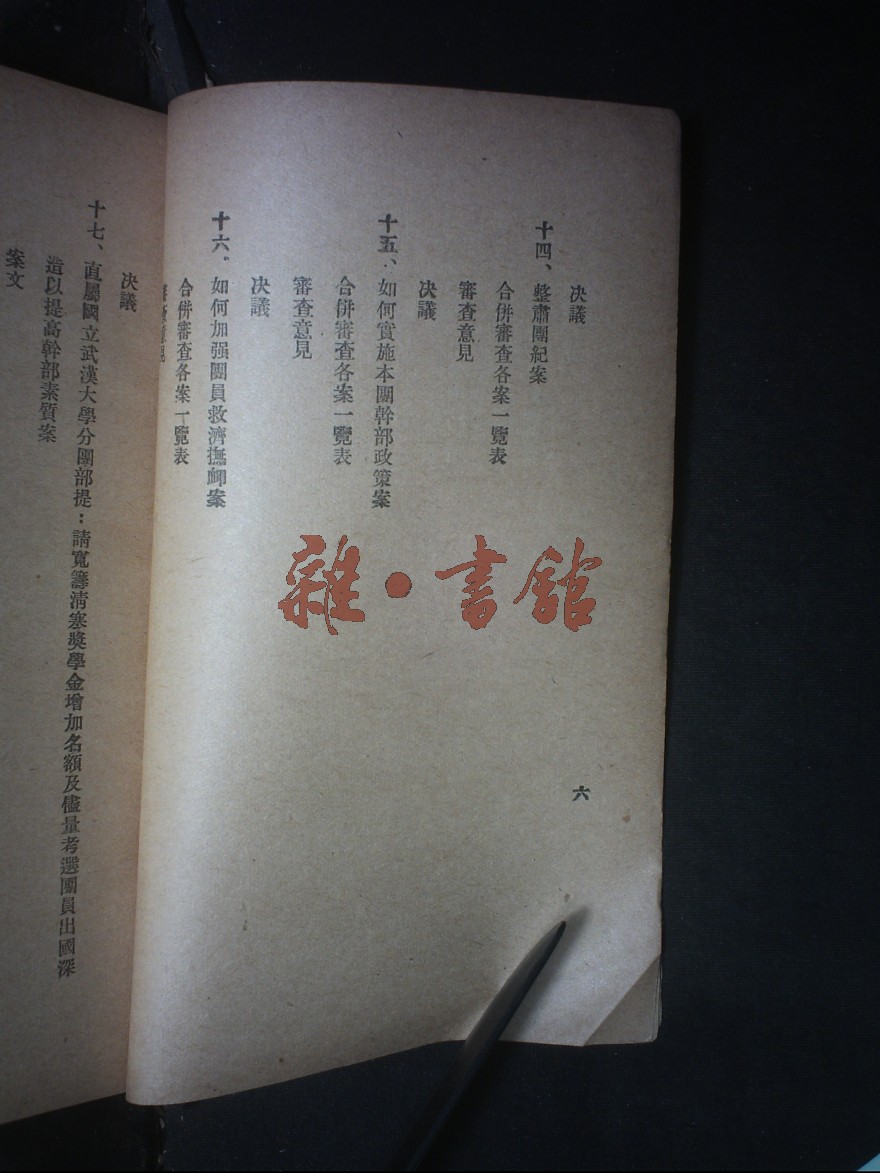 决議
十四、整肅團紀案
合併審查各案一覽表
審查意見
决議
十五、如何實施本團幹部政策案
合併審查各案一覽表
審查意見
决議
十六、如何加强團員救濟撫卹案
合併審查各案一覽表
審查意見
决議
十七、直屬國立武漢大學分團部提：請寬籌清寒奬學金增加名額及儘量考選團員出國深
造以提高幹部素質案
案文
六
雜·書館